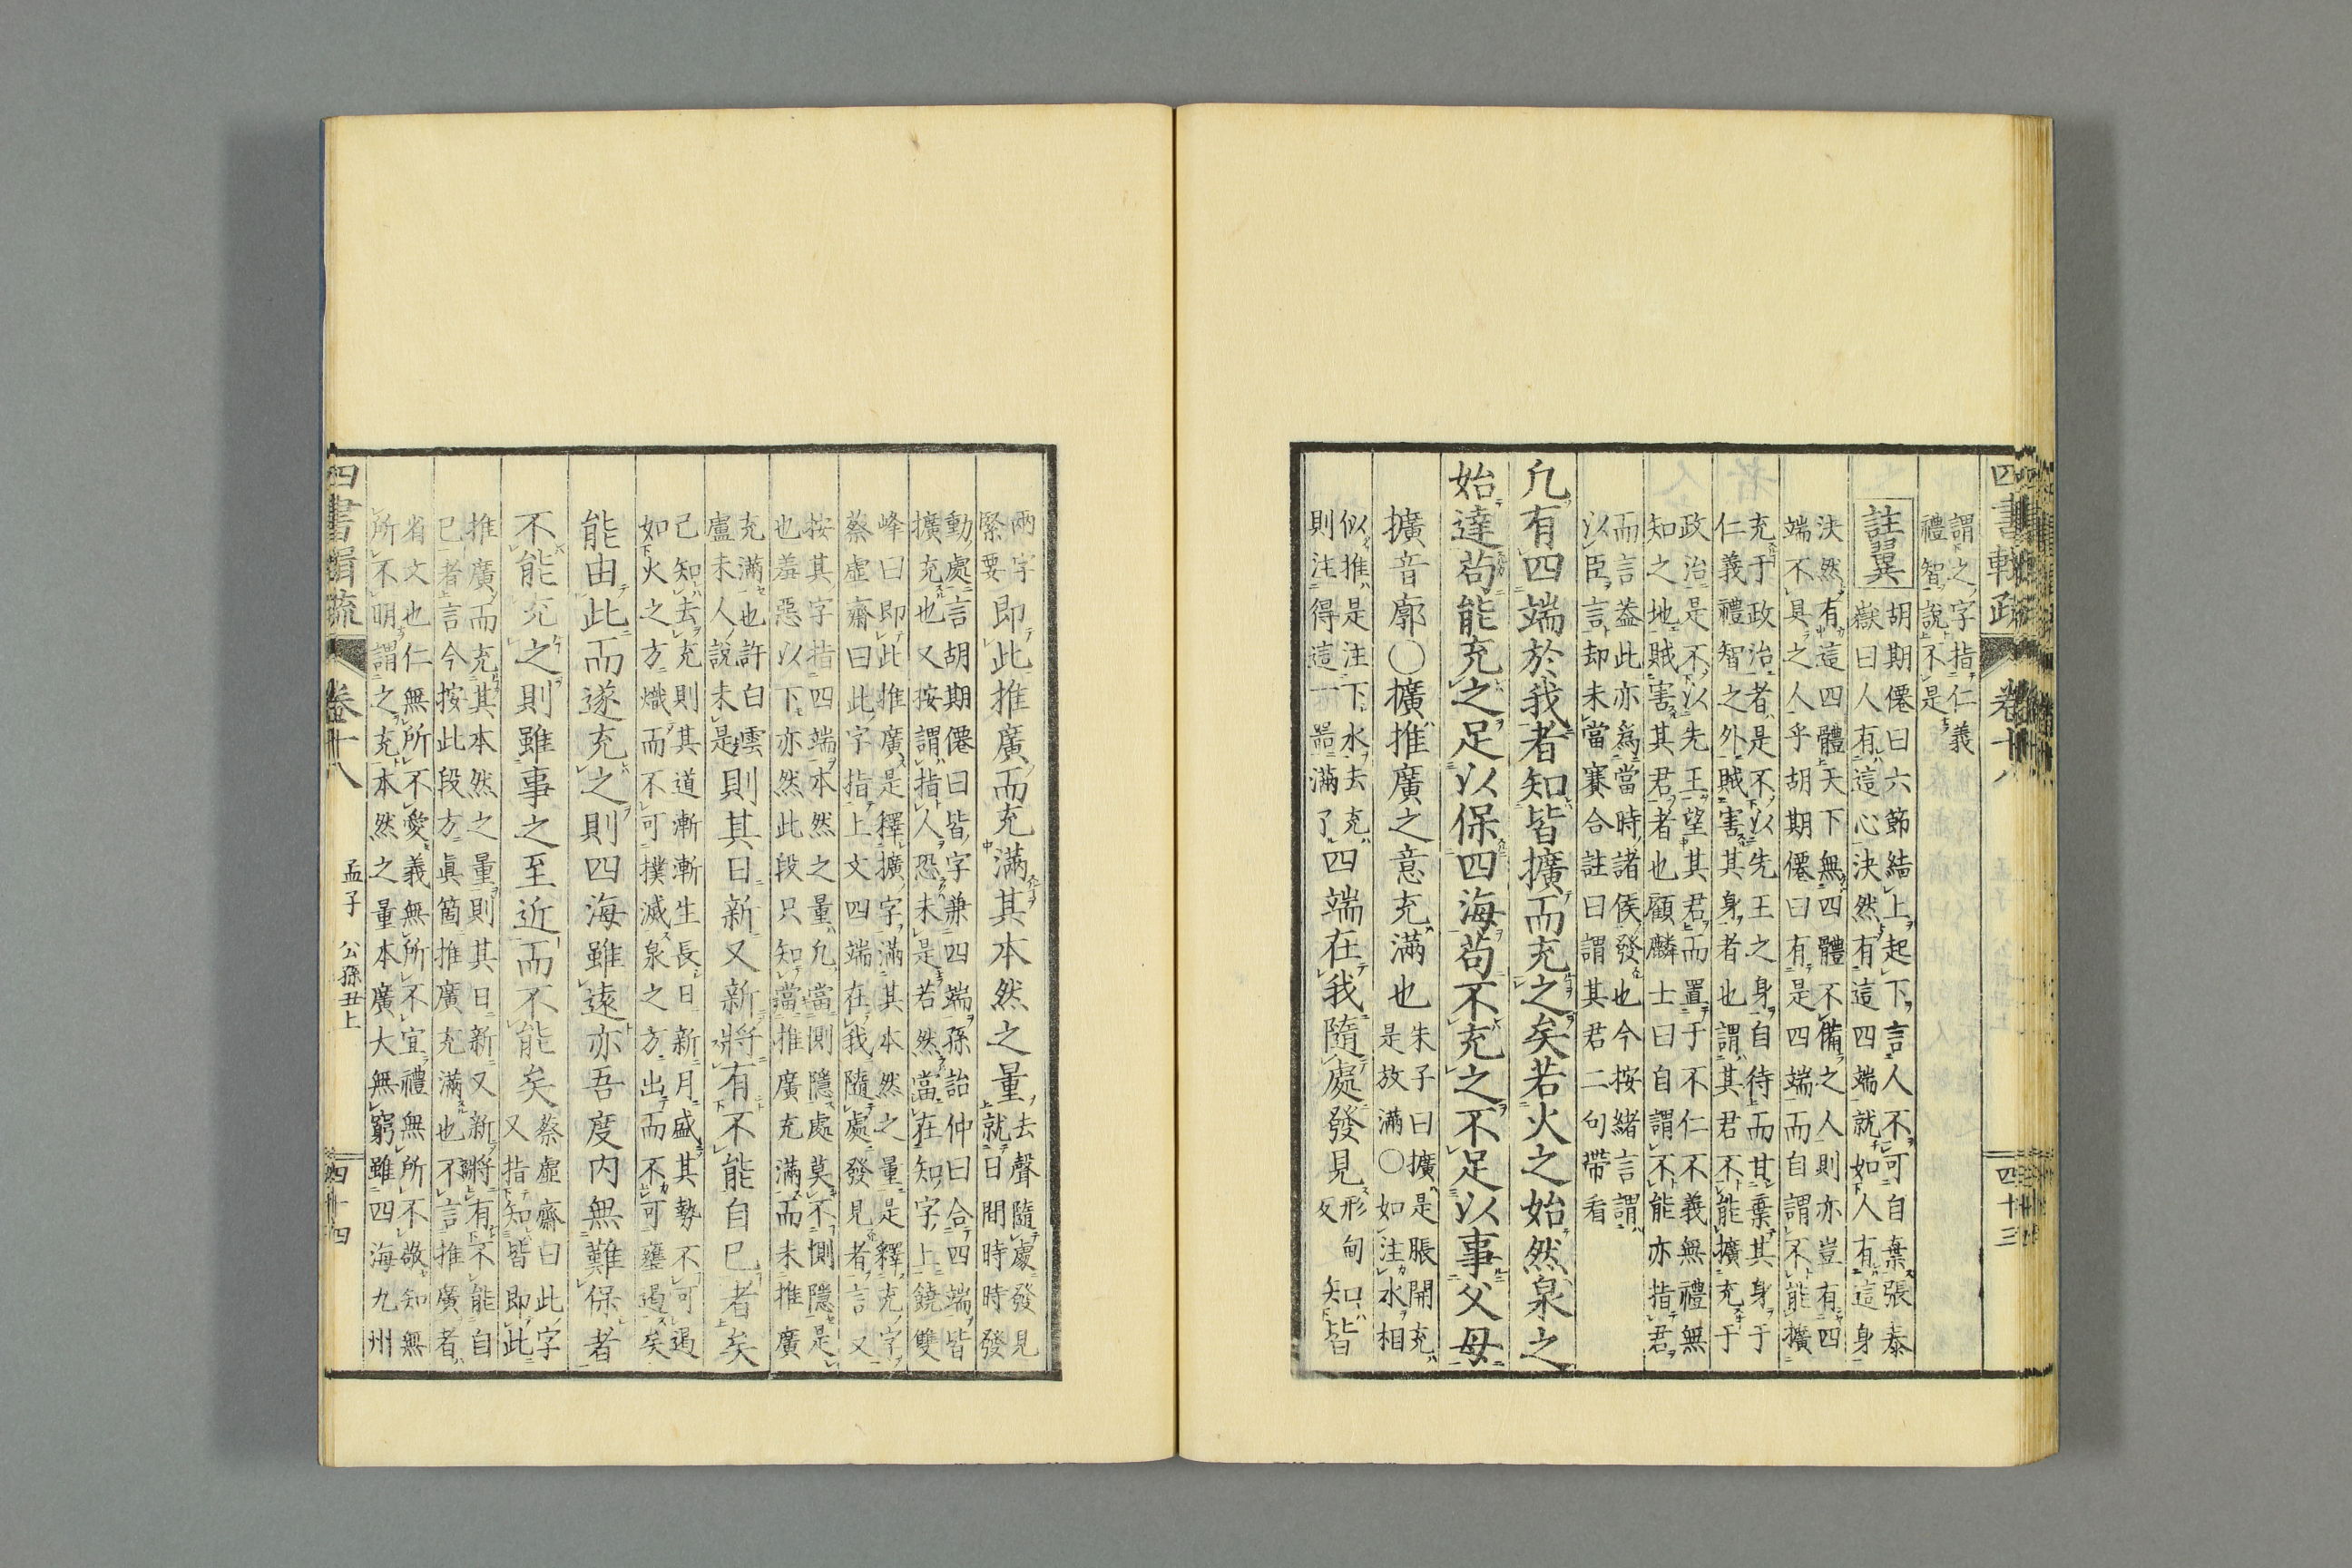 四書輯疏
卷十八
四十三
謂之字指仁義
禮智說不是
註翼
胡期僊曰六節結上起下言人不可自棄張泰
嶽曰人有這心決然有這四端就如人有這身
決然有這四體天下無四體不備之人則亦豈有四
端不具之人乎胡期僊曰有是四端而自謂不能擴
充于政治者是不以先王之身自待而甘棄其身于
仁義禮智之外賊害其身者也謂其君不能擴充于
政治是不以先王望其君而置于不仁不義無禮無
知之地賊害其君者也顧麟士曰自謂不能亦指君
而言蓋此亦為當時諸侯發也今按緒言謂
以臣言却未當賽合註曰謂其君二句帶看
凡有四端於我者知皆擴而充之矣若火之始然泉之
始達苟能充之足以保四海苟不充之不足以事父母
擴音廓○擴推廣之意充滿也
朱子曰擴是脹開充
是放滿○如注水相
似推是注下水去充
則注得這一噐滿了
四端在我隨處發見
形甸
反
知皆
兩字
緊要
即此推廣而充滿其本然之量
去聲隨處發見
就日間時時發
動處言胡期僊曰皆字兼四端孫詒仲曰合四端皆
擴充也又按謂指人恐未是若然當在知字上饒雙
峰曰即此推廣是釋擴字滿其本然之量是釋充字
蔡虛齋曰此字指上文四端在我隨處發見者言又
按其字指四端本然之量凡當惻隱處莫不惻隱是
也羞惡以下亦然此段只知當推廣充滿而未推廣
充滿也許白雲
盧未人說未是
則其日新又新將有不能自已者矣
己知去充則其道漸漸生長日新月盛其勢不可遏
如火之方熾而不可撲滅泉之方出而不可壅遏矣
能由此而遂充之則四海雖遠亦吾度内無難保者
不能充之則雖事之至近而不能矣
蔡虛齋曰此字
又指知皆即此
推廣而充其本然之量則其日新又新將有不能自
已者言今按此段方眞箇推廣充滿也不言推廣者
省文也仁無所不愛義無所不宜禮無所不敬知無
所不明謂之充本然之量本廣大無窮雖四海九州
四書輯疏
卷十八
孟子 公孫丑上
四十四